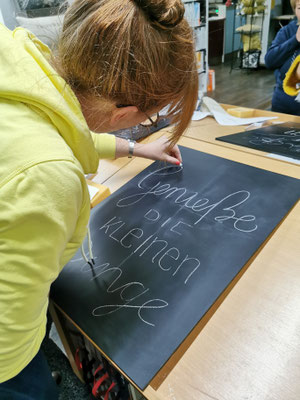 Genieße
DIE
KLEINEN
nge